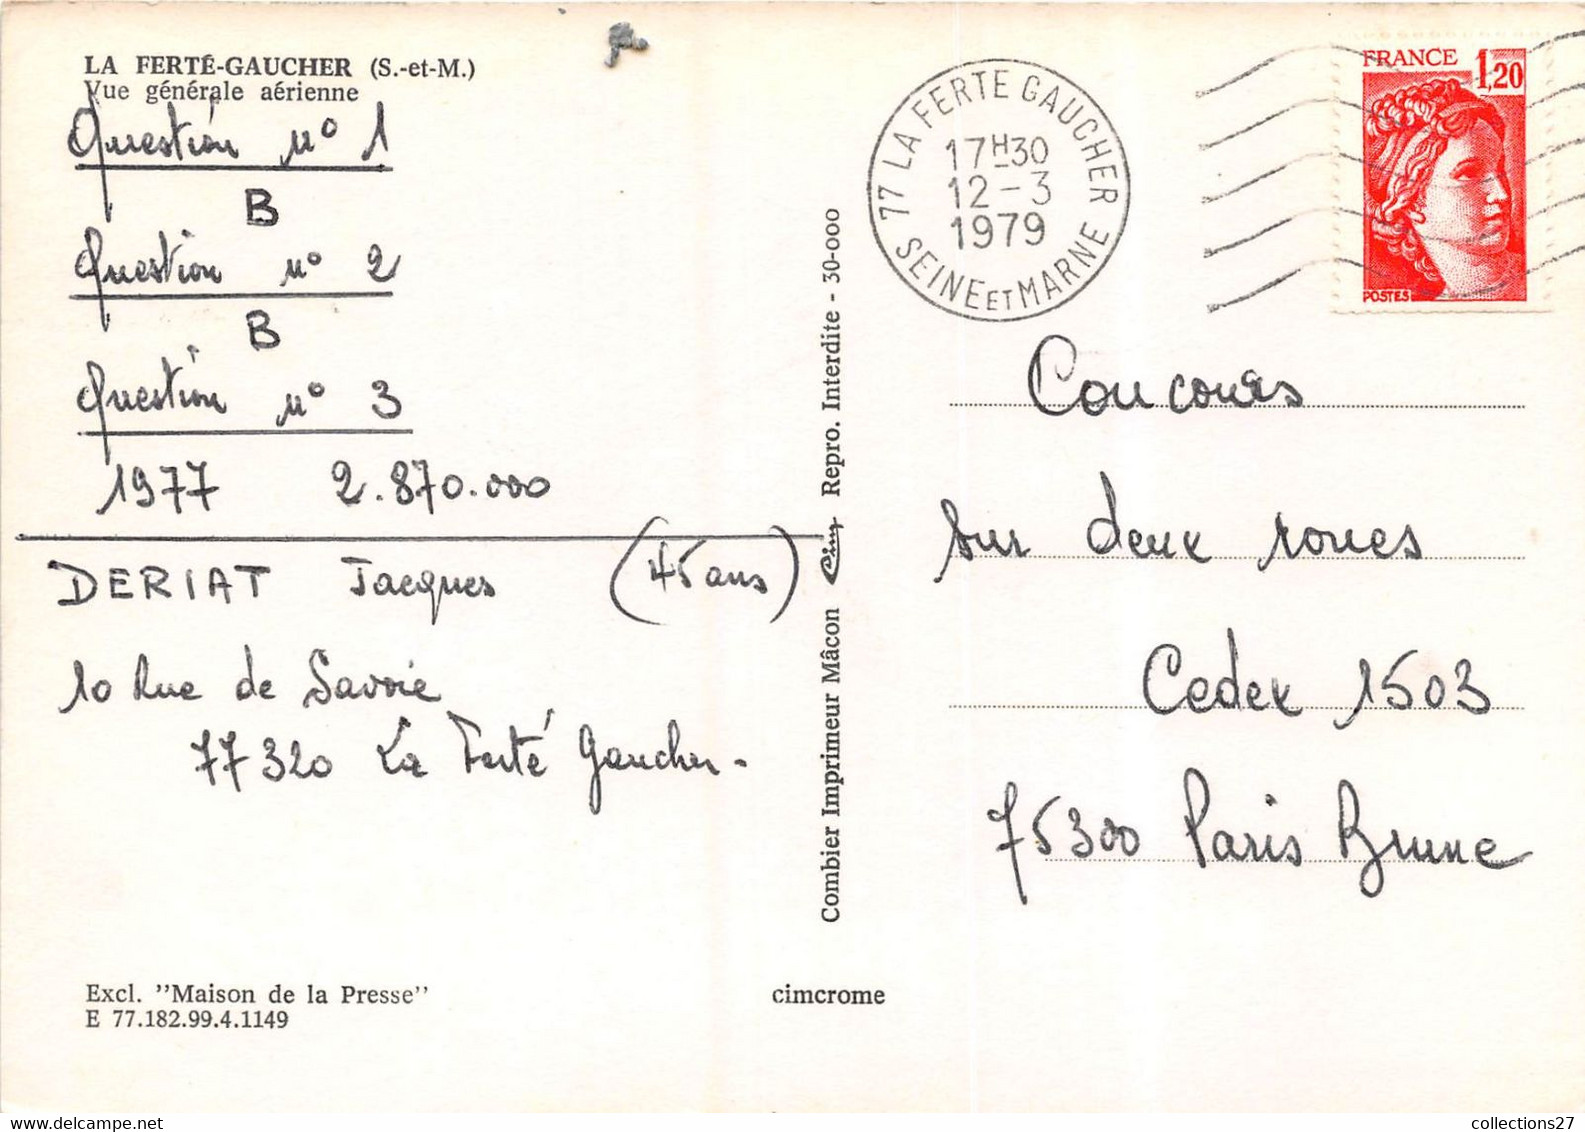 LA FERTÉ-GAUCHER (S.-et-M.)
Vue générale aérienne
Question n° 1
B
Question n° 2
B
Question n° 3
1977 2.870.000
DERIAT Jacques (45 ans)
10 Rue de Savoie
77320 La Ferté Gaucher.
Excl. "Maison de la Presse"
E 77.182.99.4.1149
Combier Imprimeur Mâcon Cim Repro. Interdite - 30-000
cimcrome
77 LA FERTE GAUCHER
17H30
12-3
1979
SEINE ET MARNE
FRANCE 1,20
POSTES
Concours
sur deux roues
Cedex 1503
75300 Paris Brune
collections27